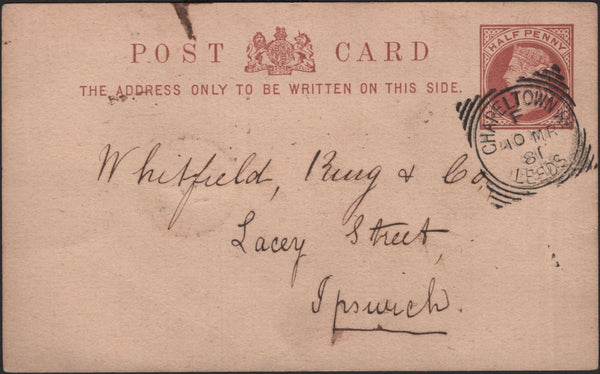 POST CARD
HALF PENNY
THE ADDRESS ONLY TO BE WRITTEN ON THIS SIDE.
CHAPELTOWN
F
10 MR
81
LEEDS
Whitfield, King & Co,
Lacey Street,
Ipswich.